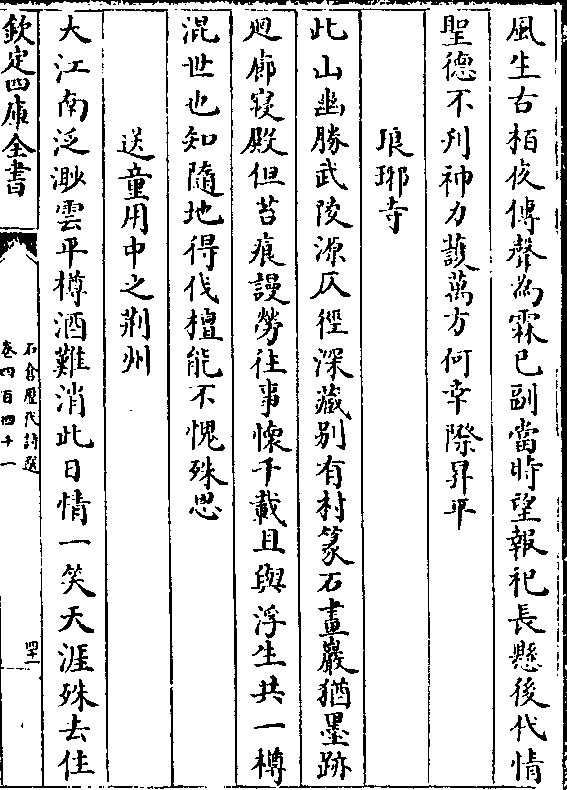 風生古栢夜傳聲為霖已副當時望報祀長懸後代情
聖德不刋神力䕶萬方何幸際昇平
琅琊寺
此山幽勝武陵源仄徑深藏别有村篆石畫巖猶墨跡
廻廊寝殿但苔痕謾勞往事懐千載且與浮生共一樽
混世也知隨地得伐檀能不愧殊恩
送童用中之荆州
大江南泛渺雲平樽酒難消此日情一笑天涯殊去住
欽定四庫全書
石倉歴代詩選
卷四百四十一
四十一